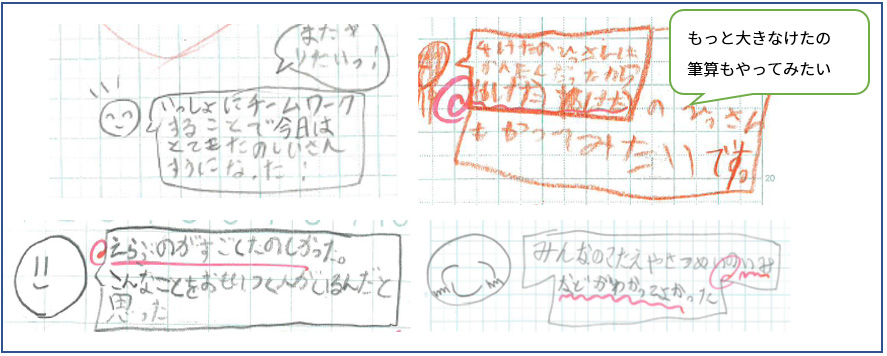 またや
りたいっ!
いっしょにチームワーク
することで今日は
とてもたのしいさん
すうになった!
4けたのひっさんは
かんたんだったから
のひっさん
もやってみたいです。
もっと大きなけたの
筆算もやってみたい
20
えらぶのがすごくたのしかった。
こんなことをおもいつく人がいるんだと
思った
みんなのこたえやせつめいのいみ
などがわかってよかった